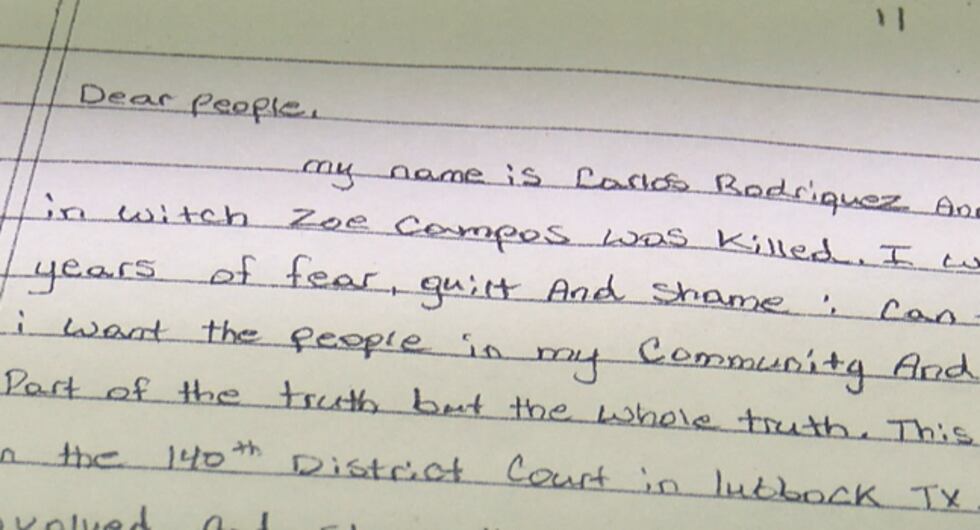 11
Dear people,
my name is Carlos Rodriquez And
in witch Zoe Campos was killed. I w
years of fear, guilt And shame i can
i want the people in my Community And
Part of the truth but the whole truth. This
n the 140th District Court in lubbock TX